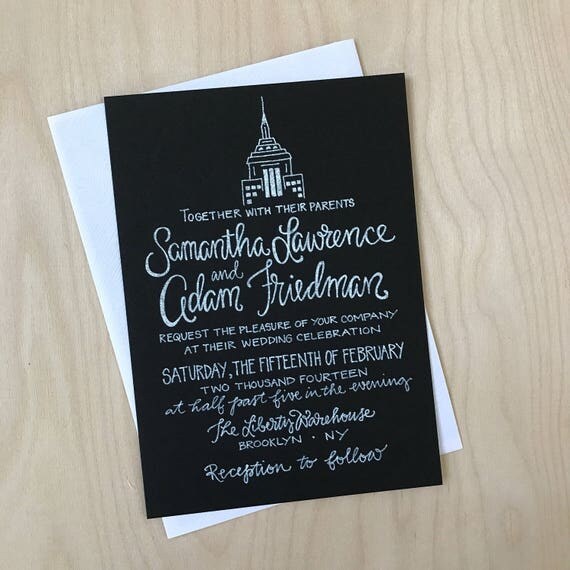 Together with their parents
Samantha Lawrence
and
Adam Friedman
request the pleasure of your company
at their wedding celebration
Saturday, the fifteenth of February
two thousand fourteen
at half past five in the evening
The Liberty Warehouse
Brooklyn · NY
Reception to follow